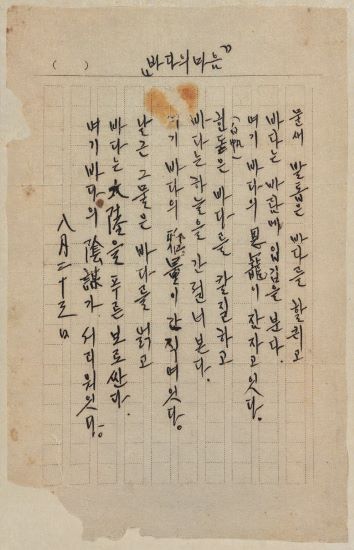 ( ) „바다의마음”
물새 발톱은 바다를 할퀴고
바다는 바람에 입김을 분다.
여기 바다의 恩寵이 잠자고잇다.
힌돛은(白帆) 바다를 칼질하고
바다는 하늘을 간질너본다.
여기 바다의 雅量이 간직여잇다.
낡은 그물은 바다를 얽고
바다는 大陸을 푸른 보로싼다.
여기 바다의 陰謀가 서리워잇다.
八月二十三日